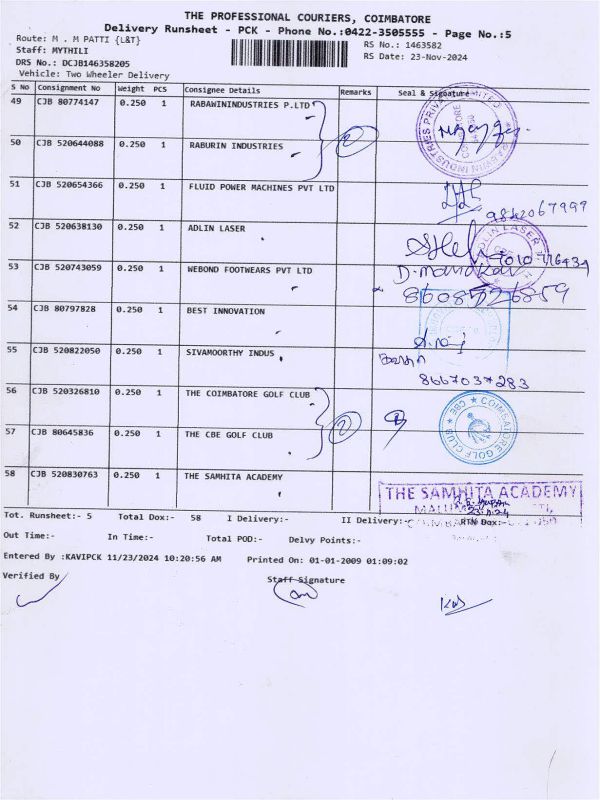 THE PROFESSIONAL COURIERS, COIMBATORE
Delivery Runsheet - PCK - Phone No.:0422-3505555 - Page No.:5
Route: M . M PATTI {L&T}
RS No.: 1463582
Staff: MYTHILI
RS Date: 23-Nov-2024
DRS No.: DCJB146358205
Vehicle: Two Wheeler Delivery
S No Consignment No Weight PCS Consignee Details Remarks Seal & Signature
49 CJB 80774147 0.250 1 RABAWININDUSTRIES P.LTD
50 CJB 520644088 0.250 1 RABURIN INDUSTRIES
2
51 CJB 520654366 0.250 1 FLUID POWER MACHINES PVT LTD
9842067997
52 CJB 520638130 0.250 1 ADLIN LASER
ADLIN LASER
53 CJB 520743059 0.250 1 WEBOND FOOTWEARS PVT LTD
D. Manokar
8608526859
54 CJB 80797828 0.250 1 BEST INNOVATION
55 CJB 520822050 0.250 1 SIVAMOORTHY INDUS
8667037283
56 CJB 520326810 0.250 1 THE COIMBATORE GOLF CLUB
2
COIMBATORE GOLF CLUB ★ CBE ★
57 CJB 80645836 0.250 1 THE CBE GOLF CLUB
58 CJB 520830763 0.250 1 THE SAMHITA ACADEMY
THE SAMHITA ACADEMY
23.11.24
Tot. Runsheet:- 5 Total Dox:- 58 I Delivery:- II Delivery:- RTN Dox:-
Out Time:- In Time:- Total POD:- Delvy Points:-
Entered By :KAVIPCK 11/23/2024 10:20:56 AM Printed On: 01-01-2009 01:09:02
Verified By Staff Signature